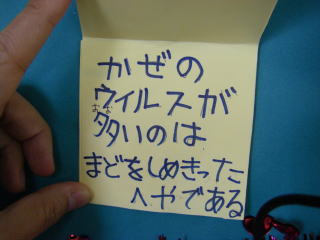 かぜの
ウィルスが
多いのは
まどをしめきった
へやである